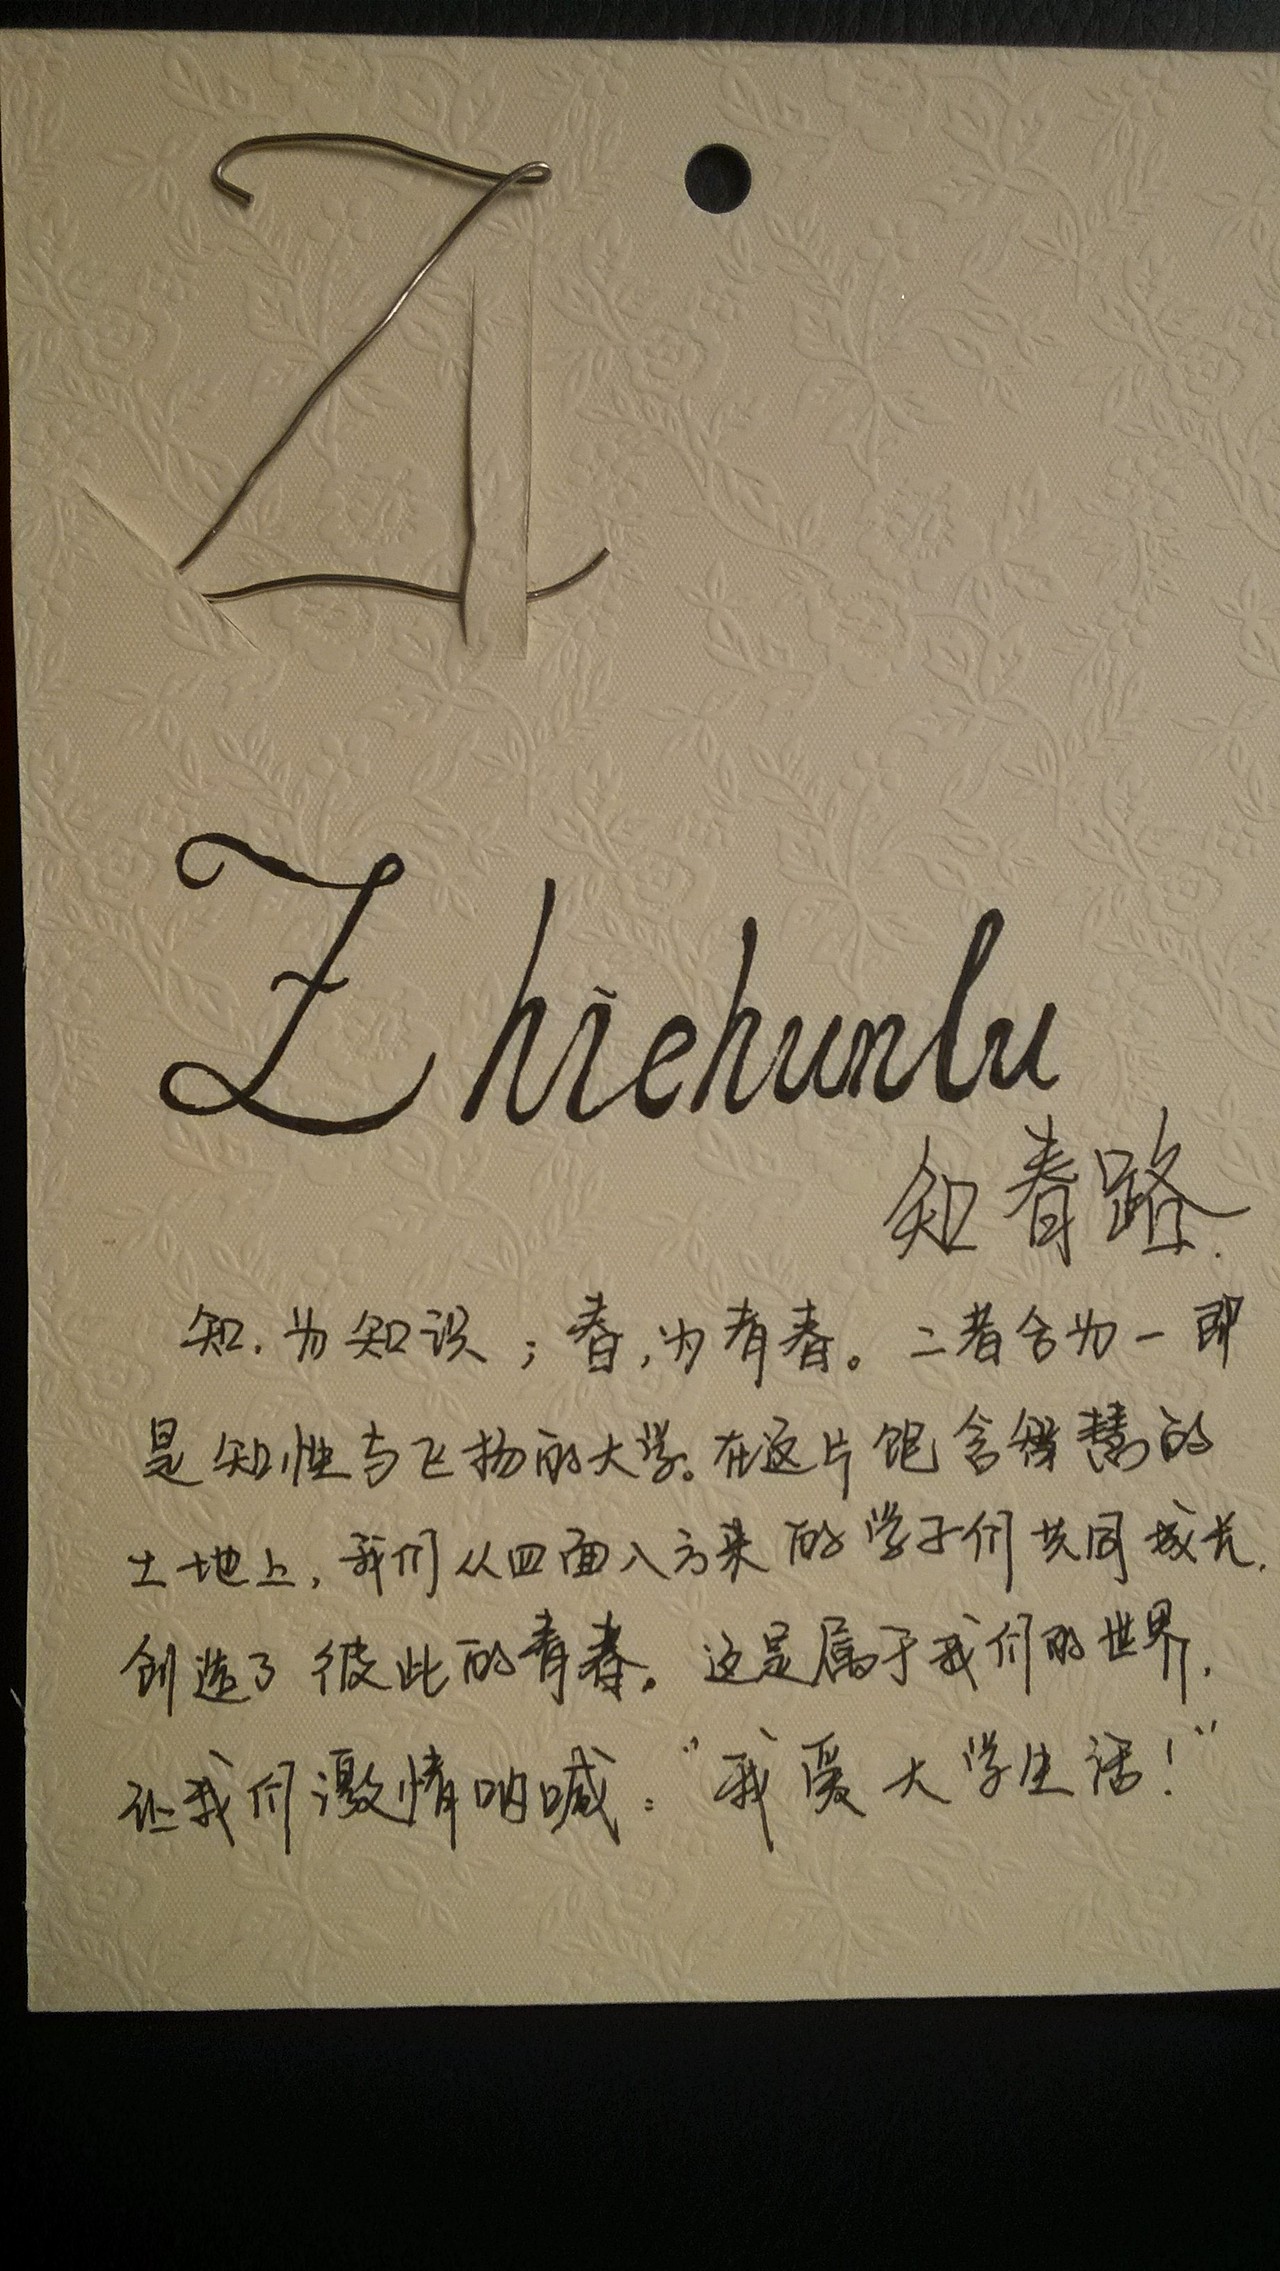 Z
Zhichunlu
知春路.
知,为知识;春,为青春。二者合为一即
是知性与飞扬的大学。在这片饱含智慧的
土地上,我们从四面八方来的学子们共同成长,
创造了彼此的青春。这是属于我们的世界,
让我们激情呐喊:“我爱大学生活!”